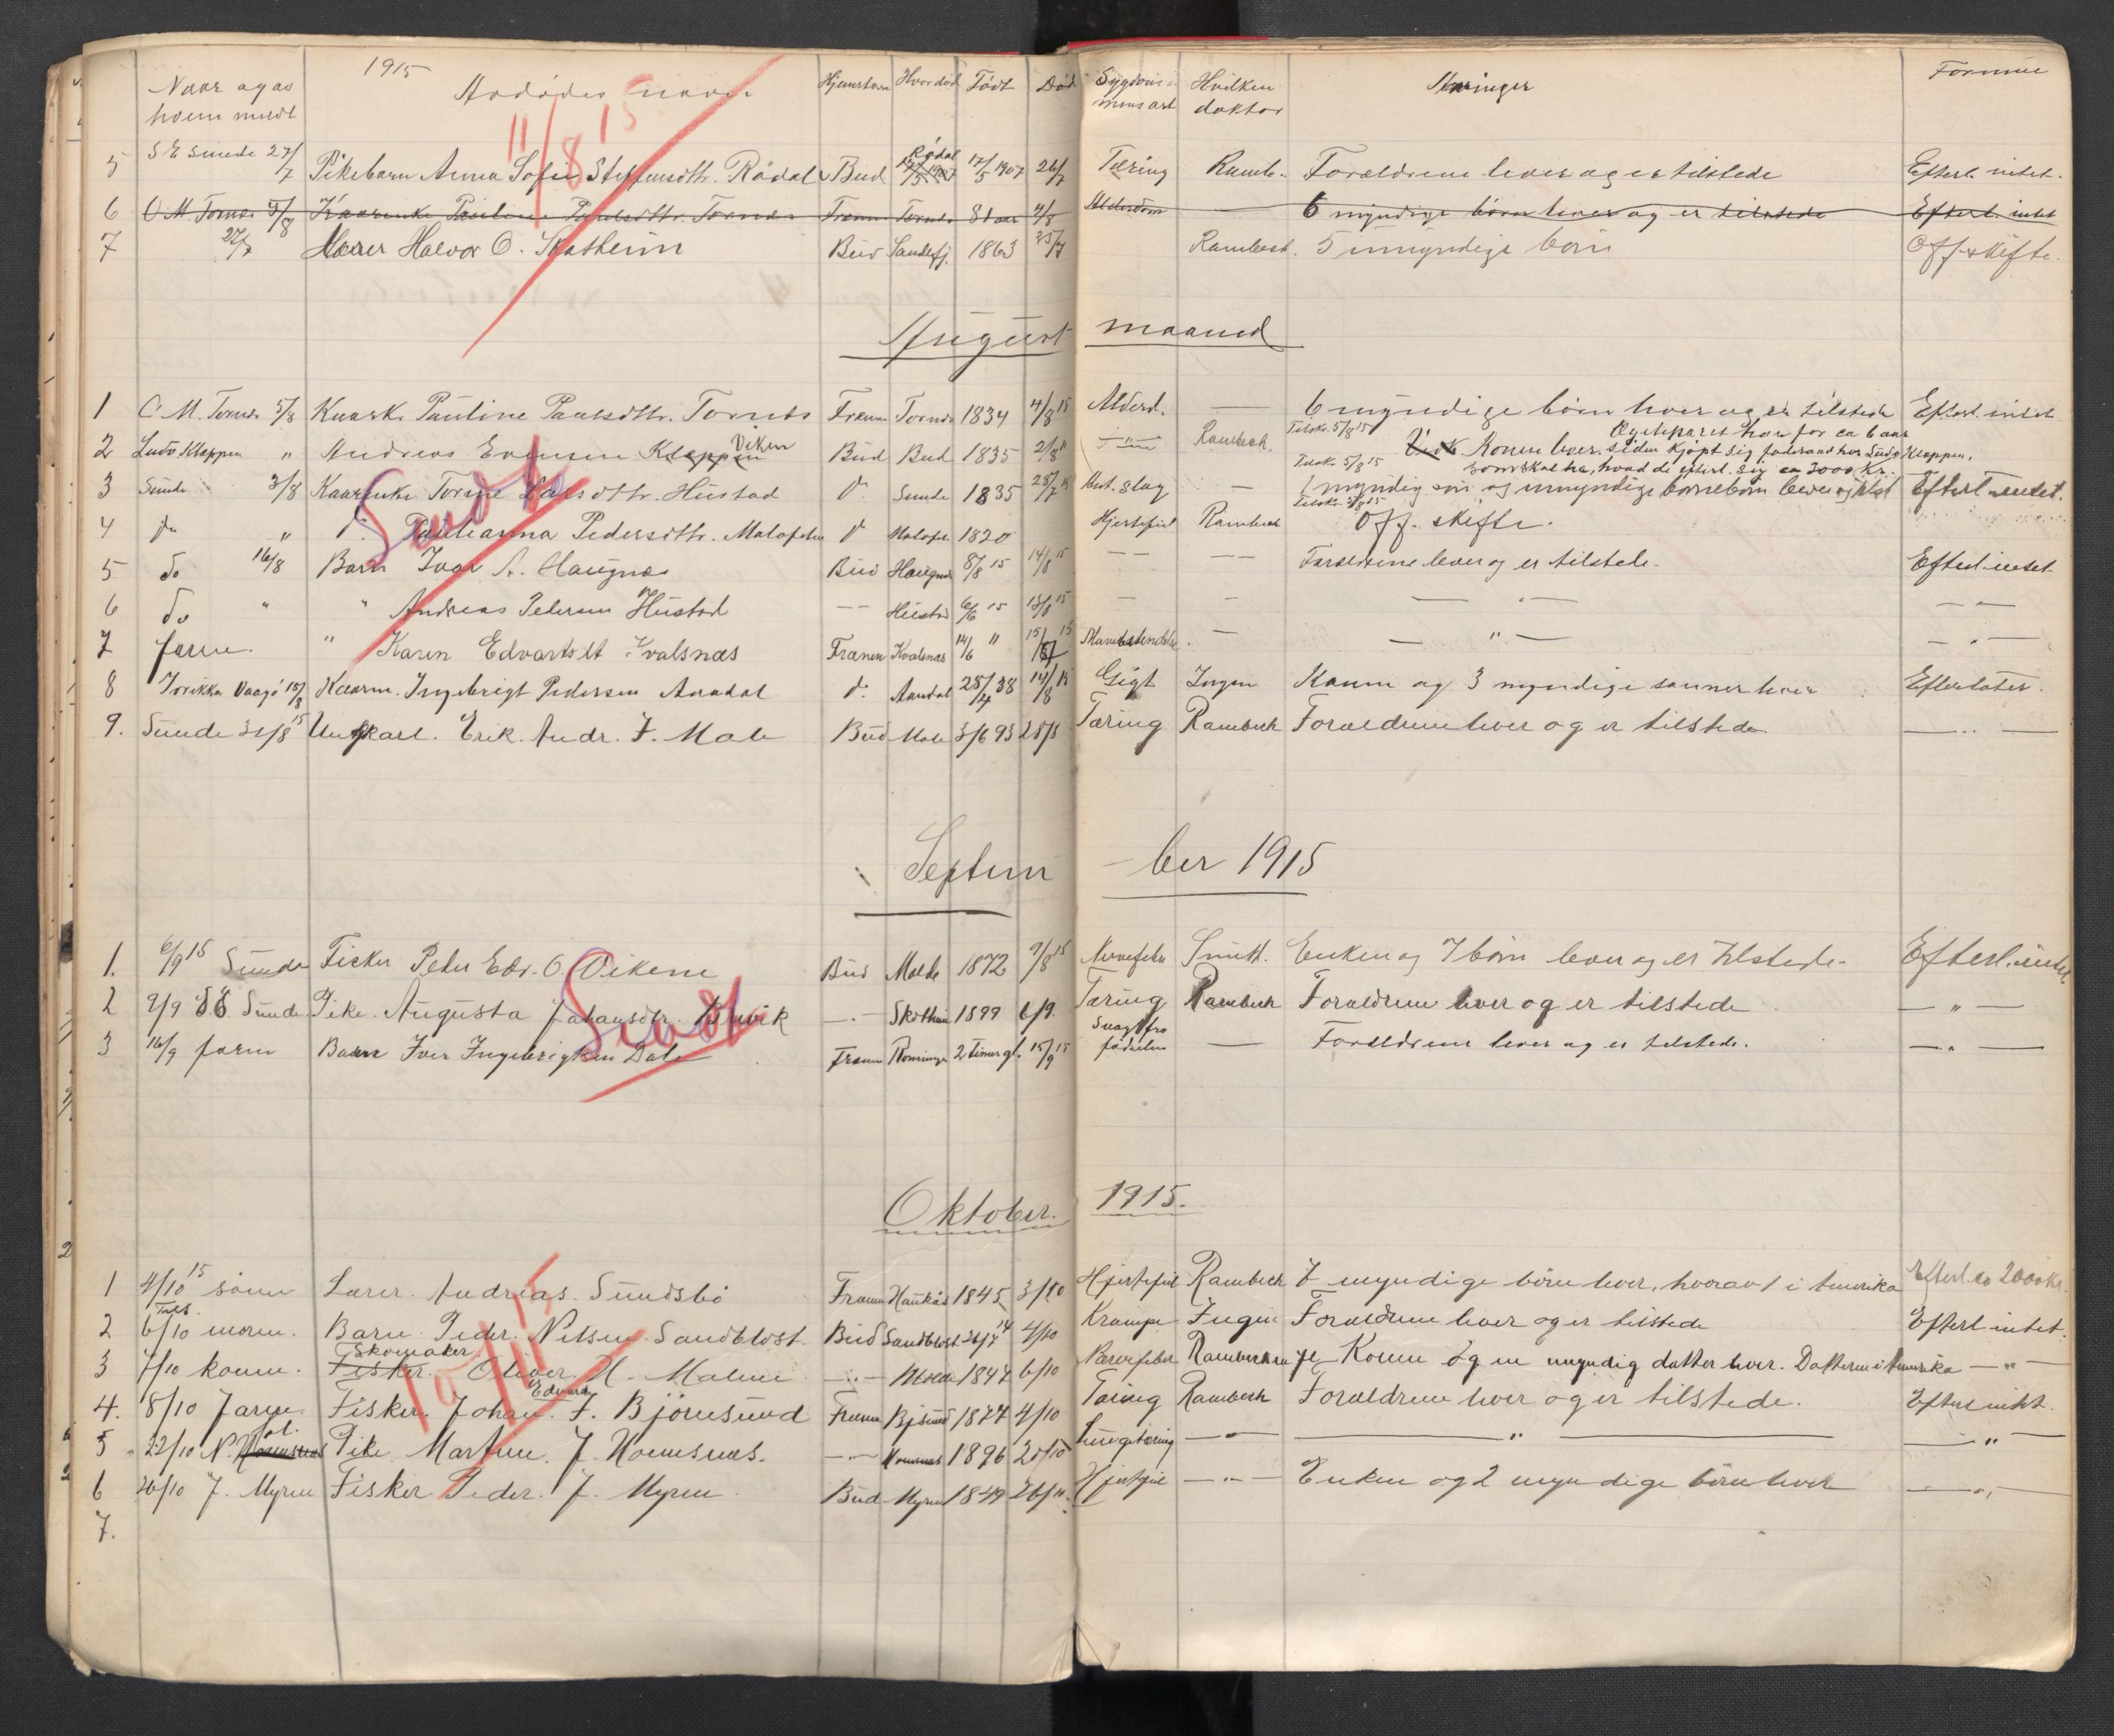 1915
Naar og av hvem meldt Avdødes navn Hjemstavn Hvor død Født Død Sygdommens art Hvilken doktor Arvinger Formue
11/8 15
5 S E Sunde 27/7 Pikebarn Anna Sofie Steffensdtr. Rødal Bud Rødal 17/5 1907 26/7 Tæring Rambe. Forældrene lever og er tilstede Efterl. intet.
6 O M Tornes 5/8 Kaarenke Pauline Paulsdttr. Tornes Fræn Tornes 81 aar 4/8 Alderdom — 6 myndige børn lever og er tilstede Efterl. intet
7 27/7 Lærer Halvor O. Skotheim Bud Sandefj. 1863 25/7 Rambech. 5 umyndige børn Off. skifte.
August maaned
1 O. M. Tornes 5/8 Kaark. Pauline Paulsdttr. Tornes Fræn Tornes 1834 4/8 15 Alderd. — 6 myndige børn lever og er tilstede Efterl. intet
2 Ludv Klappen " Andreas Evensen Klappen Viken Bud Bud 1835 2/8 " —"— Rambech. Tilsk. 5/8 15 Konen lever. Egteparet har for ca 6 aar siden kjøpt sig føderaad hos Ludv Klappen, som skal ha, hvad de efterl. sig ca 3000 Kr.
3 Sunde 3/8 Kaarenke Torine Larsdttr. Hustad d. Sunde 1835 28/7 15 Hut. slag — Tilsk. 5/8 15 1 myndig søn og umyndige børnebørn lever og tilst Efterl. intet.
4 do " d. Pauleanna Pedersdttr. Malefeten d Malefe 1820 Hjertefeil Rambech Tilsk. 5/8 15 Off. skifte.
5 do 16/8 Barn Ivar A. Haugnes Bud Haugnes 8/8 15 14/8 15 — — — — Forældrene lever og er tilstede. Efterl. intet
6 do " " Andreas Petersen Hustad — — Hustad 6/6 15 13/8 15 — — — " — — " —
7 faren. " Karen Edvartsdt Kvalsnæs Frænen Kvalsnæs 14/6 " 15/8 15 — — " — — " —
8 Jorikka Vaagø 18/8 Kaarm. Ingebrigt Pedersen Aandal d. Aandal 28/4 38 14/8 15 Gigt Ingen Konen og 3 myndige sønner lever Efterlater.
9. Sunde 31/8 15 Ungkarl. Erik. Andr. J. Male Bud Male 3/6 93 28/8 Tæring Rambech Forældrene lever og er tilstede — " —
Sendt
Septem — ber 1915
1. 6/9 15 Sunde Fisker Peter Edv. O. Vikene Bud Molde 1872 9/8 15 Nervefeber Smith. Enken og 7 børn lever og er tilstede. Efterl. intet
2 9/9 SE Sunde Pike. Augusta Johansdtr. —"— Skotheim 1899 6/9 Tæring Rambech Forældrene lever og er tilstede — " —
3 16/9 faren Barn Iver Ingebrigtsen Dale Fræn 2 timer gl. 15/9 15 Svag fra fødselen — Forældrene lever og er tilstede. — " —
Sendt
Oktober. 1915.
1 4/10 15 sønn Lærer. Andreas. Sundsbø Fræn Haukås 1845 3/10 Hjertefeil Rambech 7 myndige børn lever, hvorav 1 i Amerika Efterl. ca 2000 kr.
2 6/10 moren. Barn. Peder. Nilsen. Sandblost. Bud Sandblost 26/7 14 4/10 Krampe Ingen Forældrene lever og er tilstede Efterl. intet.
3 7/10 konen. Fisker Skomaker Oliver —"— Molde 1847 6/10 Nervefeber Konen og en myndig datter lever. Datteren i Amerika — " —
4. 8/10 Faren. Fisker. Johan. Edvard F. Bjørnsund Fræn Bjsund 1877 4/10 Tæring Rambech Forældrene lever og er tilstede. Efterl intet.
5 22/10 N. Pike Martine. J. Hornsnæs. —"— Hornsnæs 1896 20/10 Lungetæring —"— — " — — " —
6 26/10 J. Myren Fisker Peder. J. Myren. Bud Myren 1849 26/10. Hjertfeil —"— Enken og 2 myndige børn lever — " —
7.
10/11 15